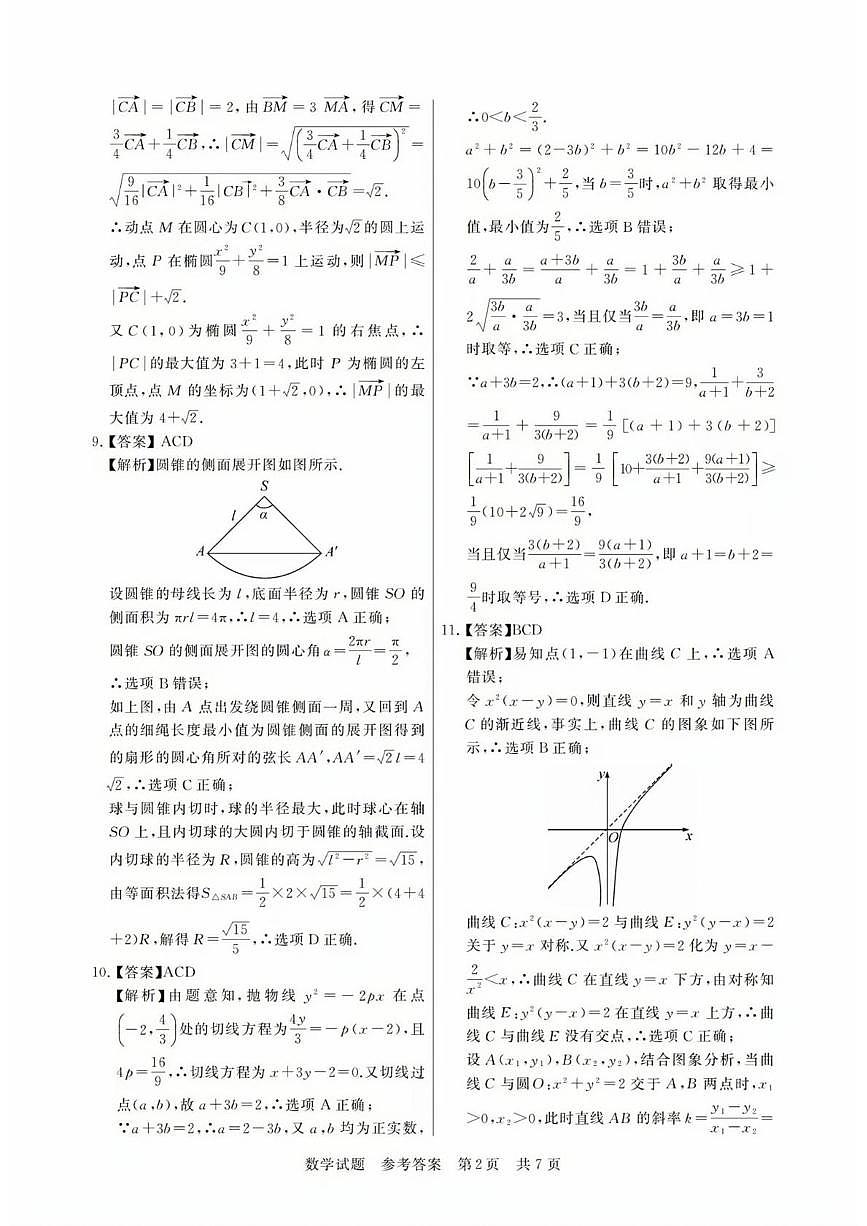 |CA|=|CB|=2,由BM=3 MA,得CM=
3/4 CA+1/4 CB,∴|CM|=√(3/4 CA+1/4 CB)²=
√(9/16|CA|²+1/16|CB|²+3/8 CA·CB)=√2.
∴动点 M 在圆心为C(1,0),半径为√2的圆上运
动,点 P 在椭圆x²/9+y²/8=1 上运动,则|MP|≤
|PC|+√2.
又 C(1,0)为椭圆x²/9+y²/8=1 的右焦点,∴
|PC|的最大值为 3+1=4,此时 P 为椭圆的左
顶点,点 M 的坐标为(1+√2,0),∴|MP|的最
大值为 4+√2.
9.【答案】ACD
【解析】圆锥的侧面展开图如图所示.
S
l α
A A′
设圆锥的母线长为 l,底面半径为 r,圆锥 SO 的
侧面积为 πrl=4π,∴l=4,∴选项 A 正确;
圆锥 SO 的侧面展开图的圆心角α=2πr/l=π/2,
∴选项 B 错误;
如上图,由 A 点出发绕圆锥侧面一周,又回到 A
点的细绳长度最小值为圆锥侧面的展开图得到
的扇形的圆心角所对的弦长 AA′,AA′=√2l=4
√2,∴选项 C 正确;
球与圆锥内切时,球的半径最大,此时球心在轴
SO 上,且内切球的大圆内切于圆锥的轴截面.设
内切球的半径为 R,圆锥的高为√(l²-r²)=√15,
由等面积法得S△SAB=1/2×2×√15=1/2×(4+4
+2)R,解得 R=√15/5,∴选项 D 正确.
10.【答案】ACD
【解析】由题意知,抛物线 y²=-2px 在点
(-2,4/3)处的切线方程为4y/3=-p(x-2),且
4p=16/9,∴切线方程为 x+3y-2=0.又切线过
点(a,b),故 a+3b=2,∴选项 A 正确;
∵a+3b=2,∴a=2-3b,又 a,b 均为正实数,
∴0<b<2/3.
a²+b²=(2-3b)²+b²=10b²-12b+4=
10(b-3/5)²+2/5,当b=3/5时,a²+b² 取得最小
值,最小值为2/5,∴选项 B 错误;
2/a+a/3b=(a+3b)/a+a/3b=1+3b/a+a/3b≥1+
2√(3b/a·a/3b)=3,当且仅当3b/a=a/3b,即 a=3b=1
时取等,∴选项 C 正确;
∵a+3b=2,∴(a+1)+3(b+2)=9,1/(a+1)+3/(b+2)
=1/(a+1)+9/3(b+2)=1/9[(a+1)+3(b+2)]
[1/(a+1)+9/3(b+2)]=1/9[10+3(b+2)/(a+1)+9(a+1)/3(b+2)]≥
1/9(10+2√9)=16/9,
当且仅当3(b+2)/(a+1)=9(a+1)/3(b+2),即 a+1=b+2=
9/4时取等号,∴选项 D 正确.
11.【答案】BCD
【解析】易知点(1,-1)在曲线 C 上,∴选项 A
错误;
令 x²(x-y)=0,则直线 y=x 和 y 轴为曲线
C 的渐近线,事实上,曲线 C 的图象如下图所
示,∴选项 B 正确;
y
O x
曲线 C:x²(x-y)=2 与曲线 E:y²(y-x)=2
关于 y=x 对称.又 x²(x-y)=2 化为 y=x-
2/x²<x,∴曲线 C 在直线 y=x 下方,由对称知
曲线 E:y²(y-x)=2 在直线 y=x 上方,∴曲
线 C 与曲线 E 没有交点,∴选项 C 正确;
设 A(x₁,y₁),B(x₂,y₂),结合图象分析,当曲
线 C 与圆O:x²+y²=2 交于 A,B 两点时,x₁
>0,x₂>0,此时直线 AB 的斜率 k=(y₁-y₂)/(x₁-x₂)=
数学试题 参考答案 第2页 共7页